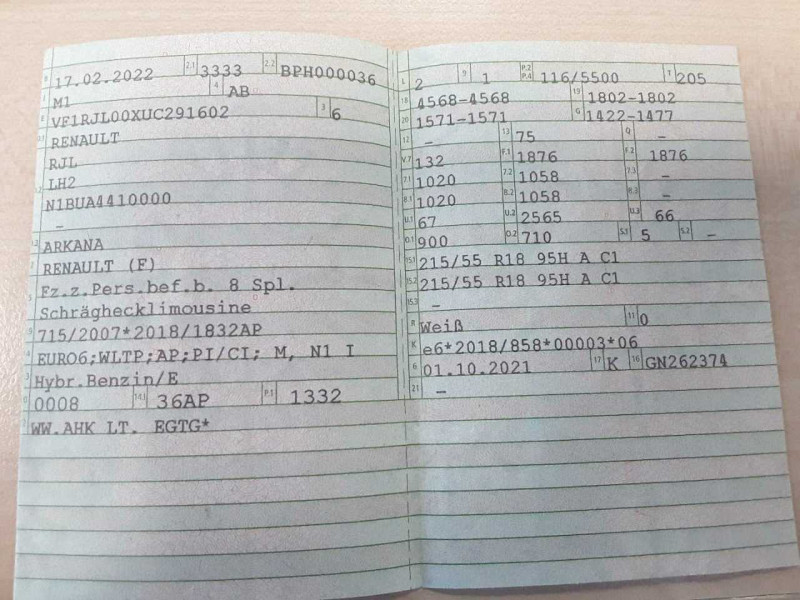 17.02.2022 2.1 3333 2.2 BPH000036
M1 4 AB
VF1RJL00XUC291602 3 6
RENAULT
RJL
LH2
N1BUA4410000
–
ARKANA
RENAULT (F)
Fz.z.Pers.bef.b. 8 Spl.
Schräghecklimousine
715/2007*2018/1832AP
EURO6;WLTP;AP;PI/CI; M, N1 I
Hybr.Benzin/E
0008 14.1 36AP P.1 1332
WW.AHK LT. EGTG*
L 2 9 1 P.2 P.4 116/5500 T 205
18 4568-4568 19 1802-1802
20 1571-1571 G 1422-1477
12 – 13 75 Q –
V.7 132 F.1 1876 F.2 1876
7.1 1020 7.2 1058 7.3 –
8.1 1020 8.2 1058 8.3 –
U.1 67 U.2 2565 U.3 66
O.1 900 O.2 710 S.1 5 S.2 –
15.1 215/55 R18 95H A C1
15.2 215/55 R18 95H A C1
15.3 –
R Weiß 11 0
K e6*2018/858*00003*06
6 01.10.2021 17 K 16 GN262374
21 –